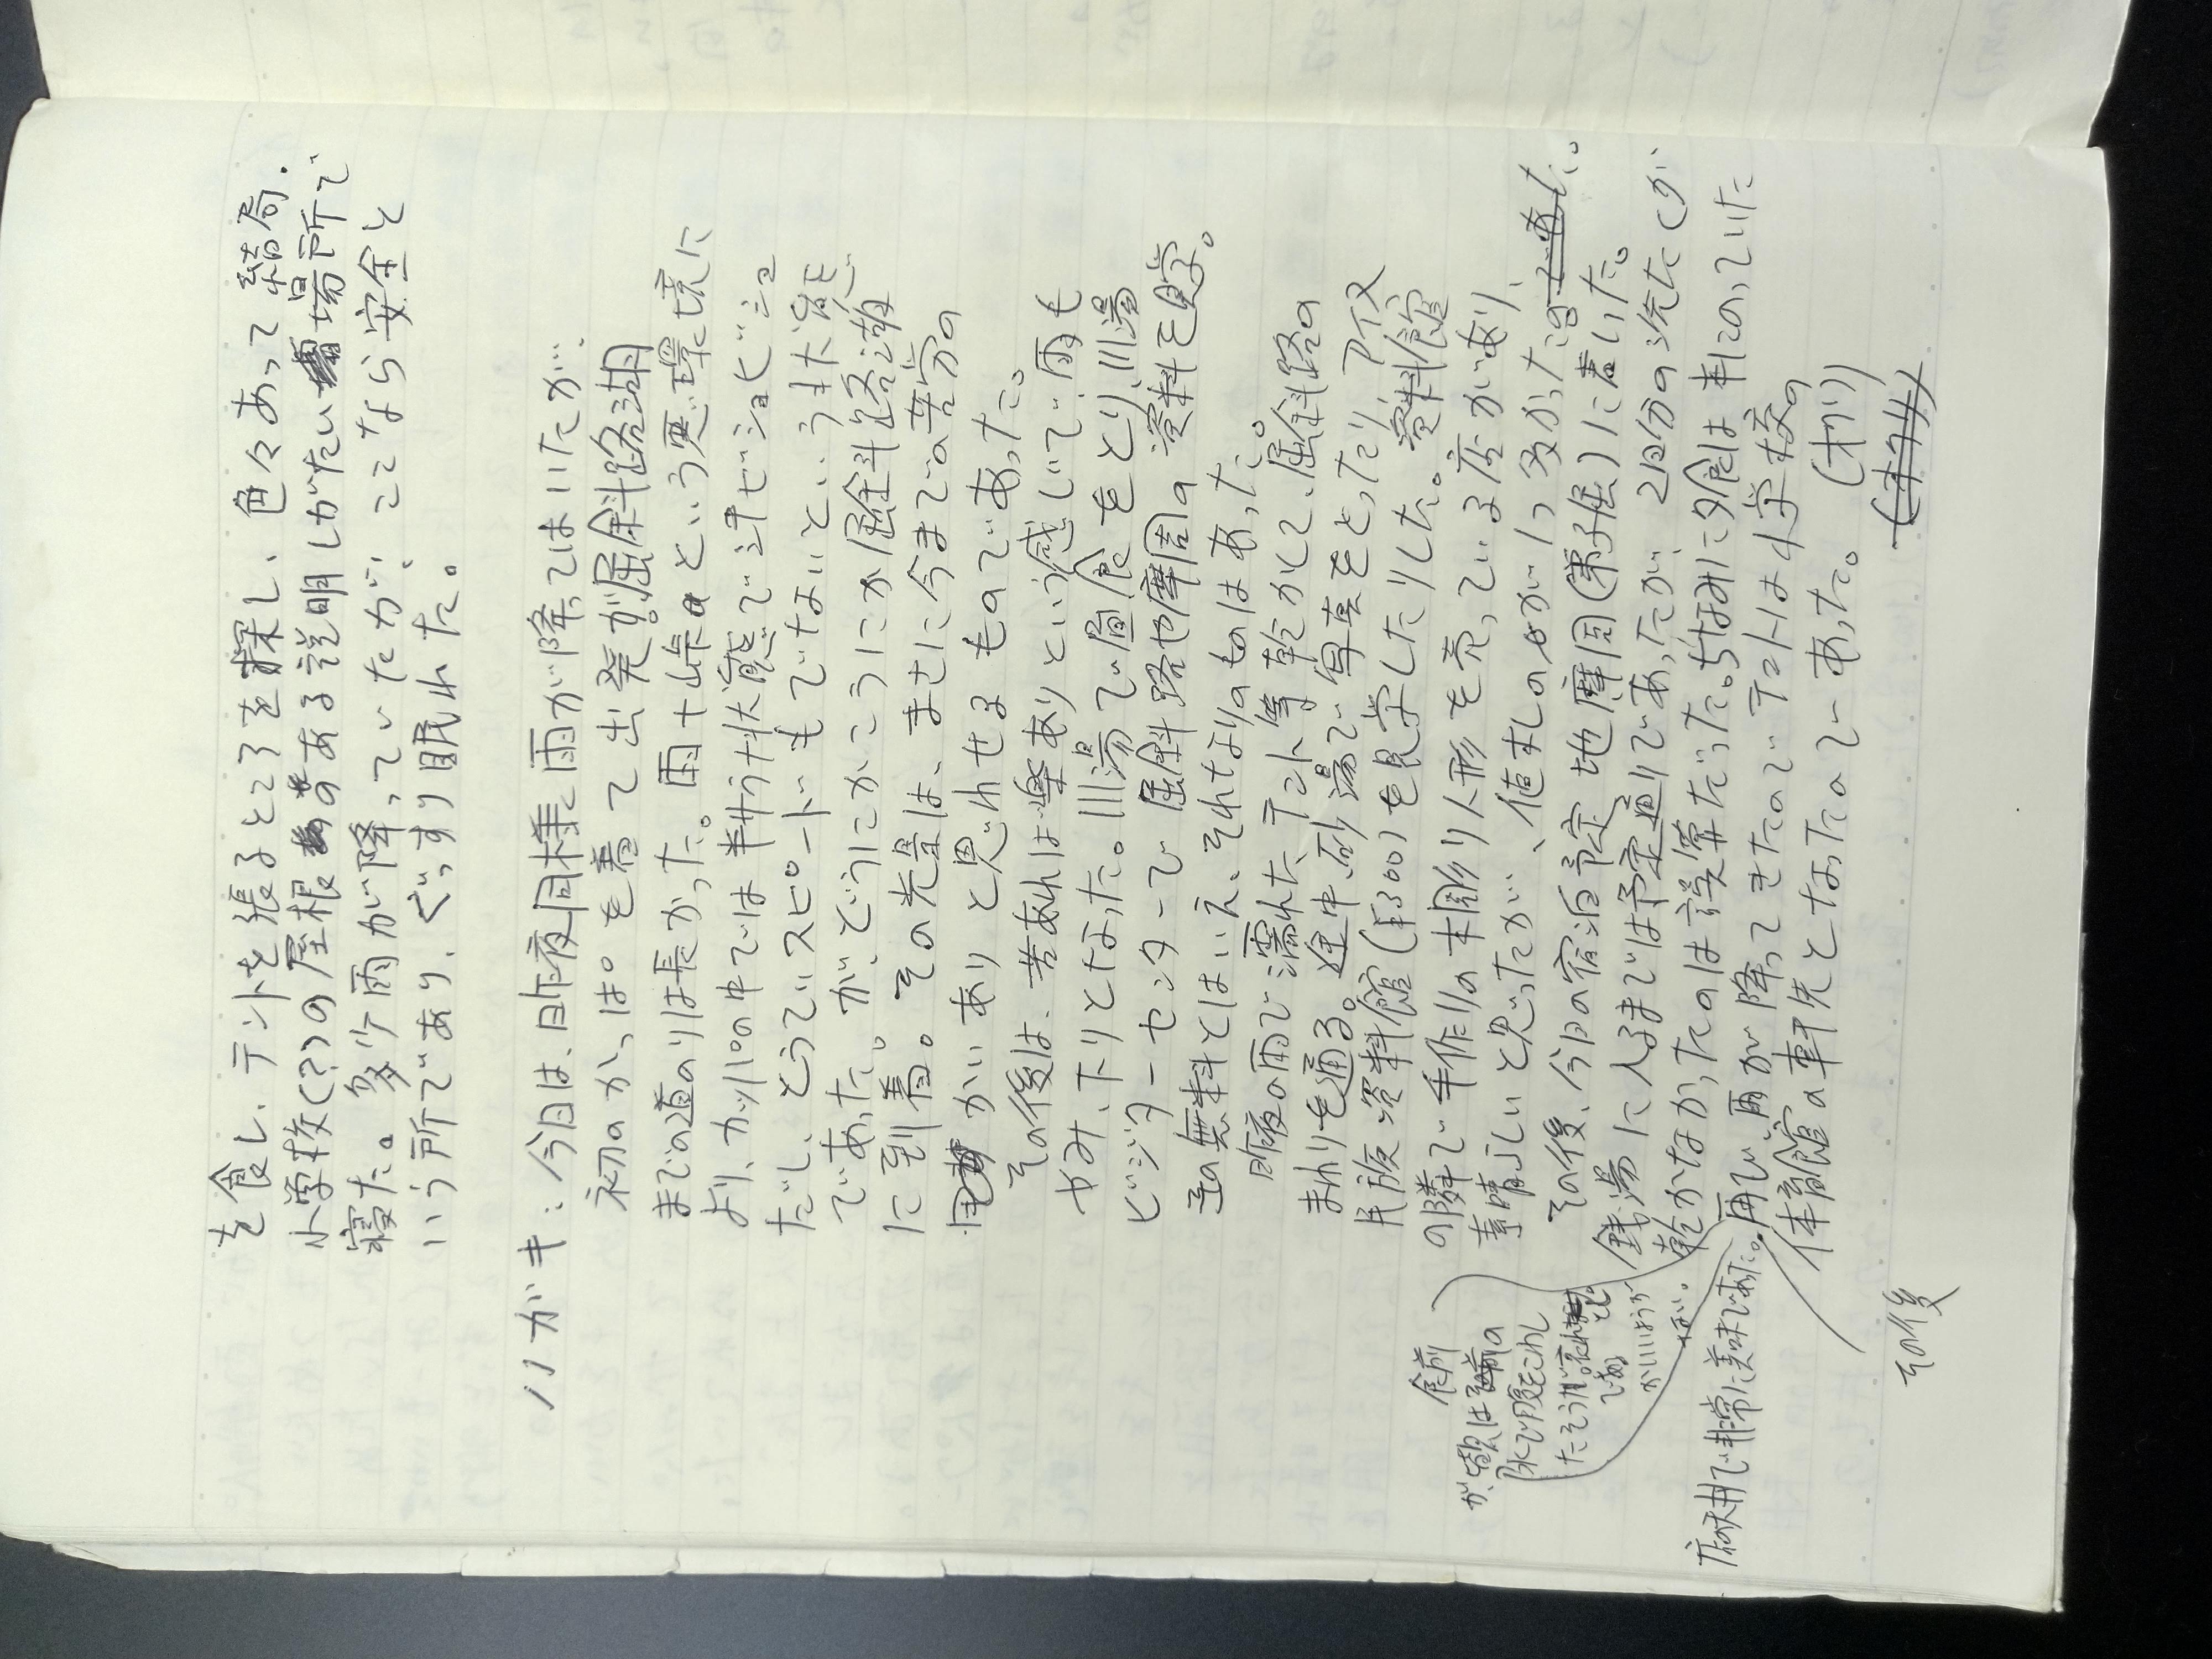 を食し、テントを張るところを探し、色々あって結局.
小学校(?)の屋根のある説明しがたい場所で
寝た。多少雨が降っていたが、ここなら安全と
いう所であり、ぐっすり眠れた。
ハガキ:今日は、昨夜同様に雨が降ってはいたが…
初のかっぱを着て出発が、屈斜路湖
までの道のりは長かった。雨+峠という悪環境に
より、カッパの中では サウナ状態でビショビショ
だし、とうていスピードもでないという状態
であった。が、どうにかこうにか屈斜路湖
に到着。その光景は、まさに今までの苦労の
かいありと思わせるものであった。
その後は、苦あれば楽ありという感じで、雨も
やみ、下りとなった。川湯で昼食をとり、川湯
ビジターセンターで 屈斜路や摩周の資料を見学。
無料とはいえ、それなりのものはあった。
昨夜の雨で濡れた、テント等乾かして、屈斜路の
まわりを通る。途中、砂湯で写真をとったり、アイヌ
民族資料館(¥300)を見学したりした。資料館
の隣で手作りの木彫り人形を売っている店があり、
素晴らしいと思ったが…、値札の0が1つ多かった。
その後、今日の宿泊予定地摩周(弟子屈)に着いた。
銭湯に入るまでは予定通りであったが、2日分の洗たくが
乾かなかったのは誤算だった。ちなみに夕食は 凝っていた
再び、雨が降ってきたのでテントは小学校の
体育館の軒先となったのであった。 (オワリ)
食前
が、
水で腹をこわし
たそうだ。
がいいようが
ない。
で非常に美味であった。
その後